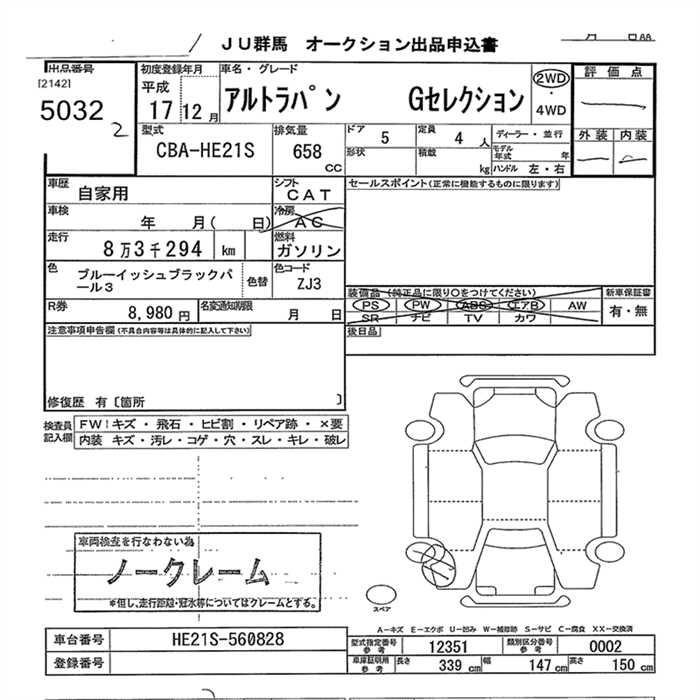 JU群馬 オークション出品申込書
出品番号
[2142]
5032
2
初度登録年月
平成
17 12月
車名・グレード
アルトラパン Gセレクション
2WD
・
4WD
評価点
外装 内装
型式
CBA-HE21S
排気量
658
CC
ドア
5
形状
定員
4 人
積載
kg
ディーラー・並行
モデル年式 年
ハンドル 左・右
車歴
自家用
シフト
CAT
セールスポイント(正常に機能するものに限ります)
車検
年 月( 日)
冷房
AC
走行
8万3千294 km
燃料
ガソリン
色
ブルーイッシュブラックパ
ール3
色替
色コード
ZJ3
装備品(純正品に限り○をつけてください)
PS PW ABS エアB AW
SR ナビ TV カワ
新車保証書
有・無
R券
8,980 円
名変通知期限
月 日
後日品
注意事項申告欄(不具合内容等は具体的に記入して下さい)
修復歴 有〔箇所 〕
検査員
記入欄
FW!キズ・飛石・ヒビ割・リペア跡・×要
内装 キズ・汚レ・コゲ・穴・スレ・キレ・破レ
車両検査を行なわない為
ノークレーム
※但し、走行距離・冠水等についてはクレームとする。
スペア
A−キズ E−エクボ U−凹み W−補修跡 S−サビ C−腐食 XX−交換済
車台番号
HE21S-560828
登録番号
型式指定番号
参考
12351
類別区分番号
参考
0002
車庫証明用
参考
長さ
339 cm
幅
147 cm
高さ
150 cm